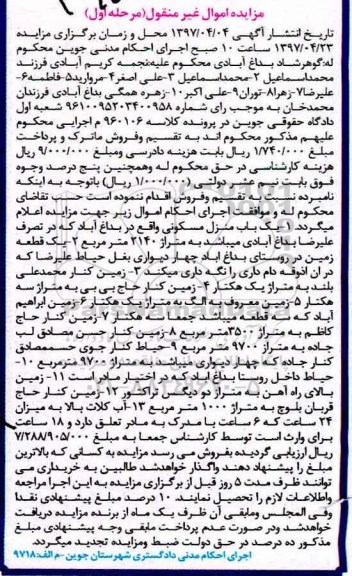 مزایده اموال غیر منقول(مرحله اول)
تاریخ انتشار آگهی ۱۳۹۷/۰۴/۰۴ محل و زمان برگزاری مزایده
۱۳۹۷/۰۴/۲۳ ساعت ۱۰ صبح اجرای احکام مدنی جوین محکوم
له:گوهرشاد بداغ آبادی محکوم علیه:نجمه کریم آبادی فرزند
محمداسماعیل ۲-محمداسماعیل ۳-علی اصغر۴-مروارید۵-فاطمه۶-
علیرضا۷-زهرا۸-توران۹-علی اکبر۱۰-زهره همگی بداغ آبادی فرزندان
محمدخان به موجب رای شماره ۹۶۱۰۰۹۵۲۰۳۴۰۰۹۵۸ شعبه اول
دادگاه حقوقی جوین در پرونده کلاسه ۹۶۰۱۰۶ م اجرایی محکوم
علیهم مذکور محکوم اند به تقسیم وفروش ماترک و پرداخت
مبلغ ۱/۷۴۰/۰۰۰ ریال بابت هزینه دادرسی ومبلغ ۹/۰۰۰/۰۰۰ ریال
هزینه کارشناسی در حق محکوم له وهمچنین پنج درصد وجوه
فوق بابت نیم عشر دولتی (۱/۰۰۰/۰۰۰ ریال) باتوجه به اینکه
نامبرده نسبت به تقسیم وفروش اقدام ننموده است حسب تقاضای
محکوم له و موافقت اجرای احکام اموال زیر جهت مزایده اعلام
میگردد. ۱- یک باب منزل مسکونی واقع در بداغ آباد که در تصرف
علیرضا بداغ آبادی میباشد به متراژ ۲۱۴۰ متر مربع ۲-یک قطعه
زمین در روستای بداغ اباد چهار دیواری بغل حیاط علیرضا که
در ان اذوقه دام داری را نگه داری میکند ۳- زمین کنار محمدعلی
بلند به متراژ یک هکتار ۴- زمین کنار حاج بی بی به متراژ سه
هکتار ۵-زمین معروف به الگ به متراژ یک هکتار ۶-زمین ابراهیم
آباد که سه قطعه میباشد جمعا سه هکتار ۷-زمین کنار حاج
کاظم به متراژ ۳۵۰۰متر مربع ۸-زمین کنار حسن مصادق لب
جاده به متراژ ۹۷۰۰ متر مربع ۹-حیاط کنار جوی حسنمصادق
کنار جاده که چهار دیواری میباشد به‌متراژ ۹۷۰۰ مترمربع ۱۰-
حیاط داخل روستا بداغ اباد که در اختیار مادر است ۱۱- زمین
بالای راه آهن به متراژ دو دیکس تراکتور ۱۲-زمین کنار حاج
قربان بلوچ به متراژ ۱۰۰۰ متر مربع ۱۳-آب کلات بالا به میزان
۲۴ ساعت که ۶ ساعت با مدرک به مادر تعلق دارد و ۱۸ ساعت
برای وارث است توسط کارشناس جمعا به مبلغ ۷/۲۸۸/۹۰۵/۰۰۰
ریال ارزیابی گردیده بفروش می رسد مزایده به کسانی که بالاترین
مبلغ را پیشنهاد دهند واگذار خواهدشد طالبین به خریداری می
توانند ظرف مدت ۵ روز قبل از برگزاری مزایده به این اجرا مراجعه
واطلاعات لازم را تحصیل نمایند. ۱۰ درصد مبلغ پیشنهادی نقدا
وفی المجلس ومابقی آن ظرف یک ماه از برنده مزایده دریافت
خواهدشد ودر صورت عدم پرداخت مابقی وجه پیشنهادی مبلغ
مذکور ده درصد در حق دولت ضبط ومزایده تجدید میگردد.
اجرای احکام مدنی دادگستری شهرستان جوین -م الف:۹۷۱۸